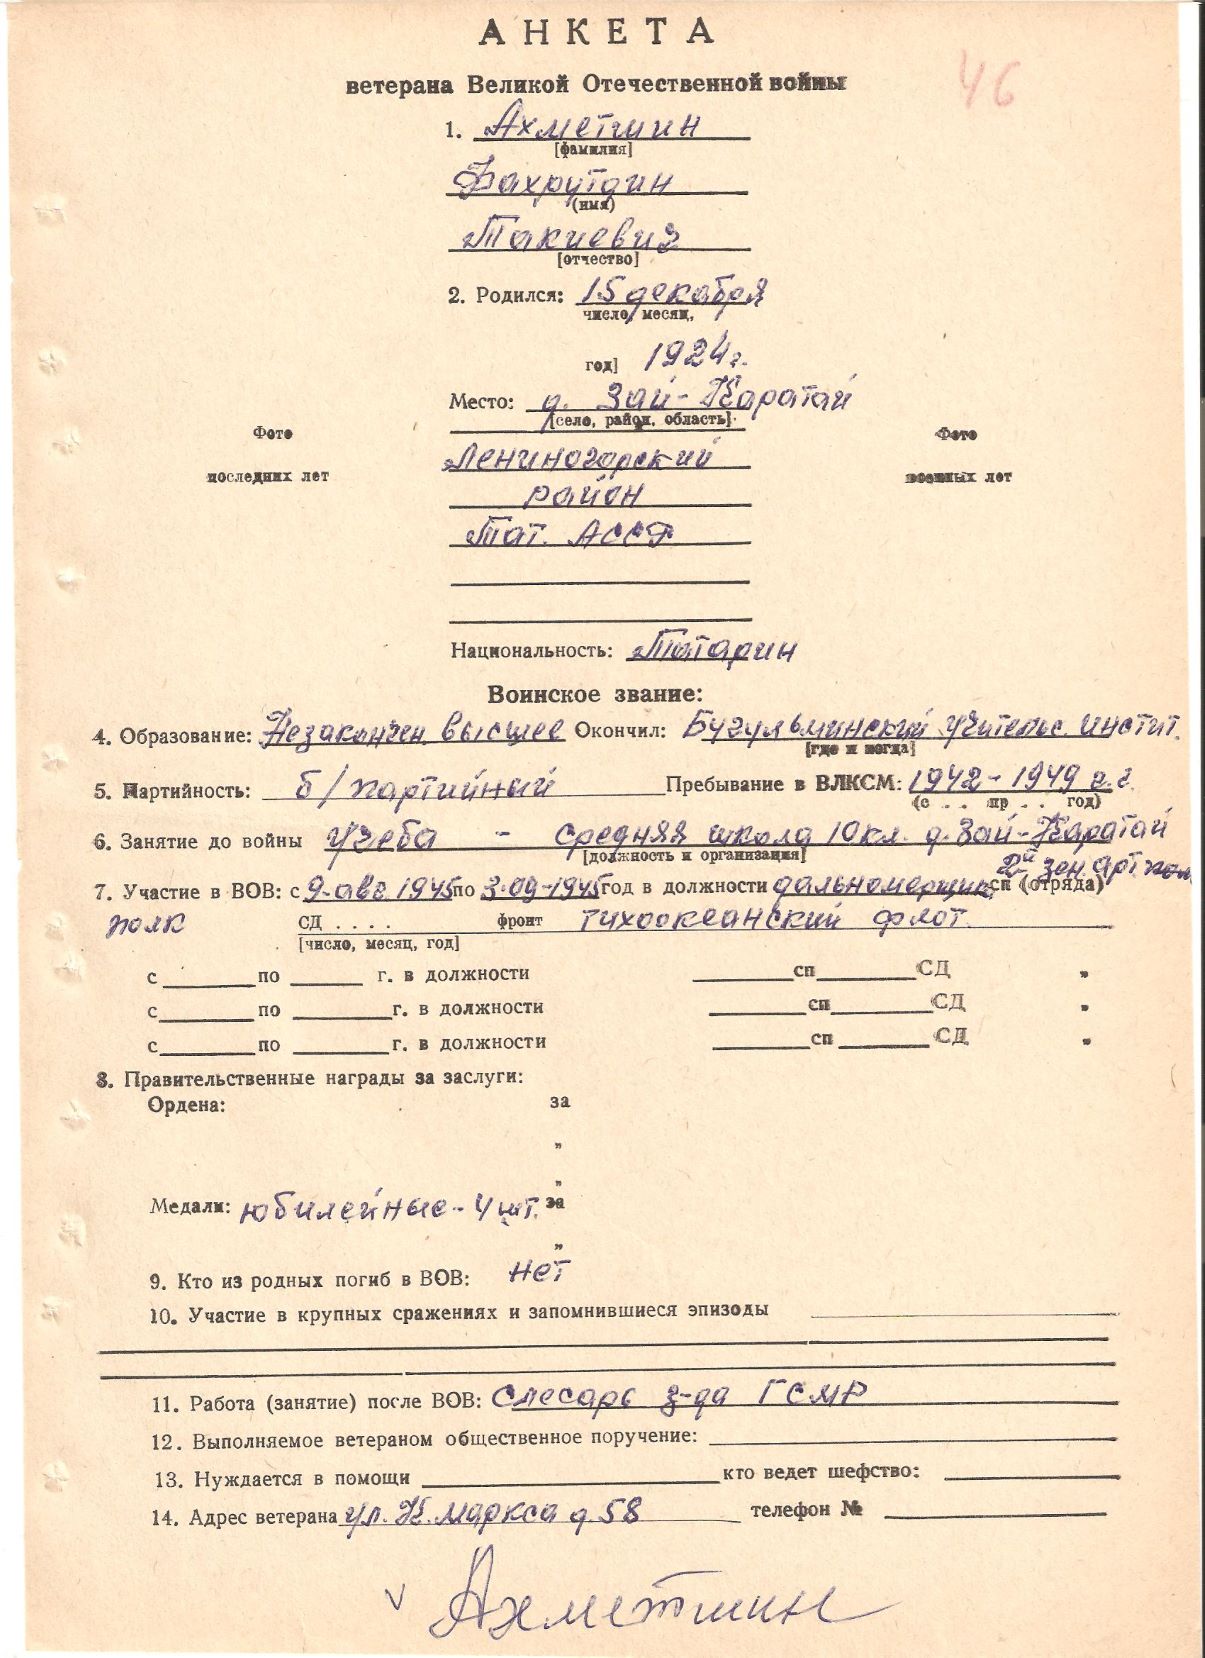 АНКЕТА
ветерана Великой Отечественной войны
46
1. Ахметшин
[фамилия]
Фахрутдин
(имя)
Такиевич
[отчество]
2. Родился: 15 декабря
число, месяц,
год] 1924 г.
Место: д. Зай-Каратай
[село, район, область]
Фото
последних лет
Фото
военных лет
Лениногорский
район
Тат. АССР
Национальность: Татарин
Воинское звание:
4. Образование: Незакончен. высшее Окончил: Бугульминский Учительс. инстит.
[где и когда]
5. Партийность: б/партийный Пребывание в ВЛКСМ: 1942-1949 г.г.
(с . . пр . . год)
6. Занятие до войны Учеба - средняя школа 10 кл. д. Зай-Каратай
[должность и организация]
2й зен. арт. пол
7. Участие в ВОВ: с 9. авг 1945 по 3-09-1945 год в должности дальномерщик сп (отряда)
полк СД . . . . фронт тихоокеанский флот.
[число, месяц, год]
с по г. в должности сп СД „
с по г. в должности сп СД „
с по г. в должности сп СД „
8. Правительственные награды за заслуги:
Ордена: за
„
„
Медали: юбилейные - 4 шт. за
„
9. Кто из родных погиб в ВОВ: нет
10. Участие в крупных сражениях и запомнившиеся эпизоды
11. Работа (занятие) после ВОВ: Слесарь з-да ГСМР
12. Выполняемое ветераном общественное поручение:
13. Нуждается в помощи кто ведет шефство:
14. Адрес ветерана ул. К. Маркса д. 58 телефон №
Ахметшин